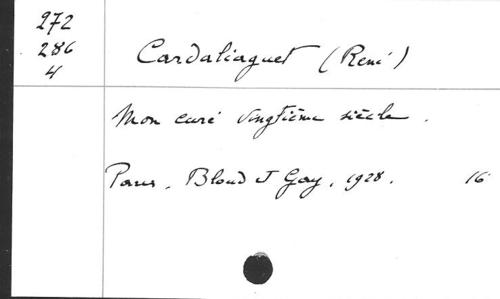 272
286
4
Cardaliaguet (René)
Mon curé vingtième siècle.
Paris, Bloud et Gay, 1928. 16